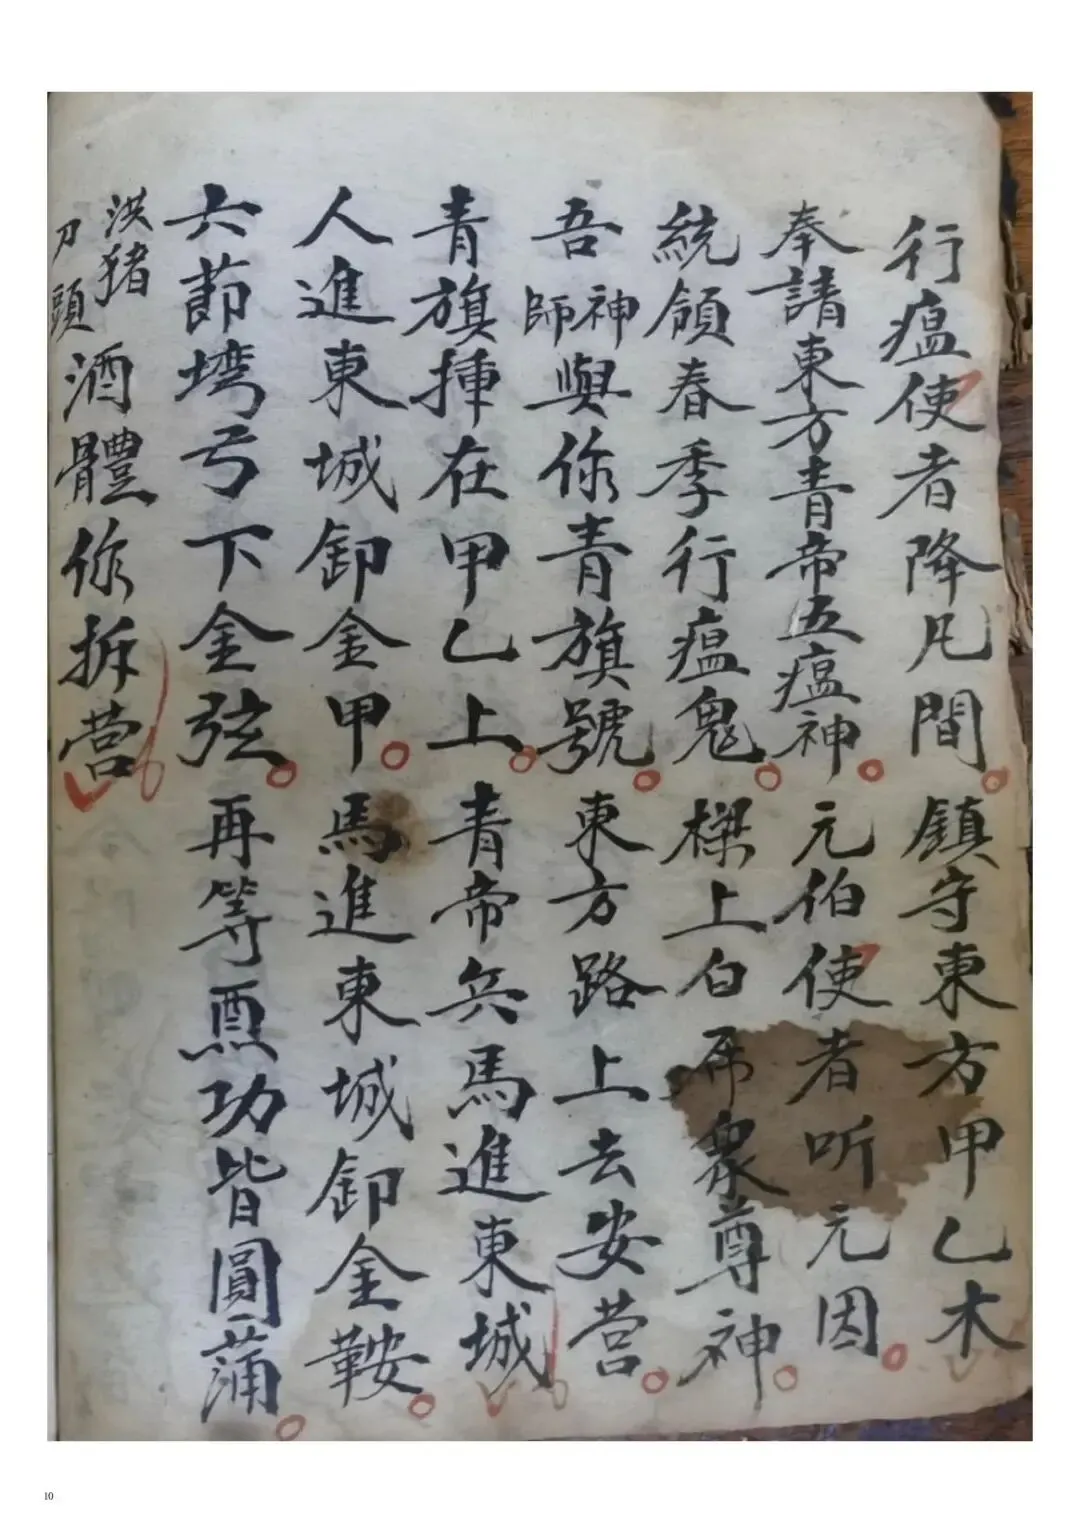 行瘟使者降凡間。鎮守東方甲乙木
奉請東方青帝五瘟神。元伯使者听元因。
統領春季行瘟鬼。樑上白席衆尊神。
吾神師與你青旗號。東方路上去安营。
青旗揷在甲乙上。青帝兵馬進東城
人進東城卸金甲。馬進東城卸金鞍。
六節塆弓下金弦。再等功皆圓蒲。
洪猪刀頭酒體你拆营
10